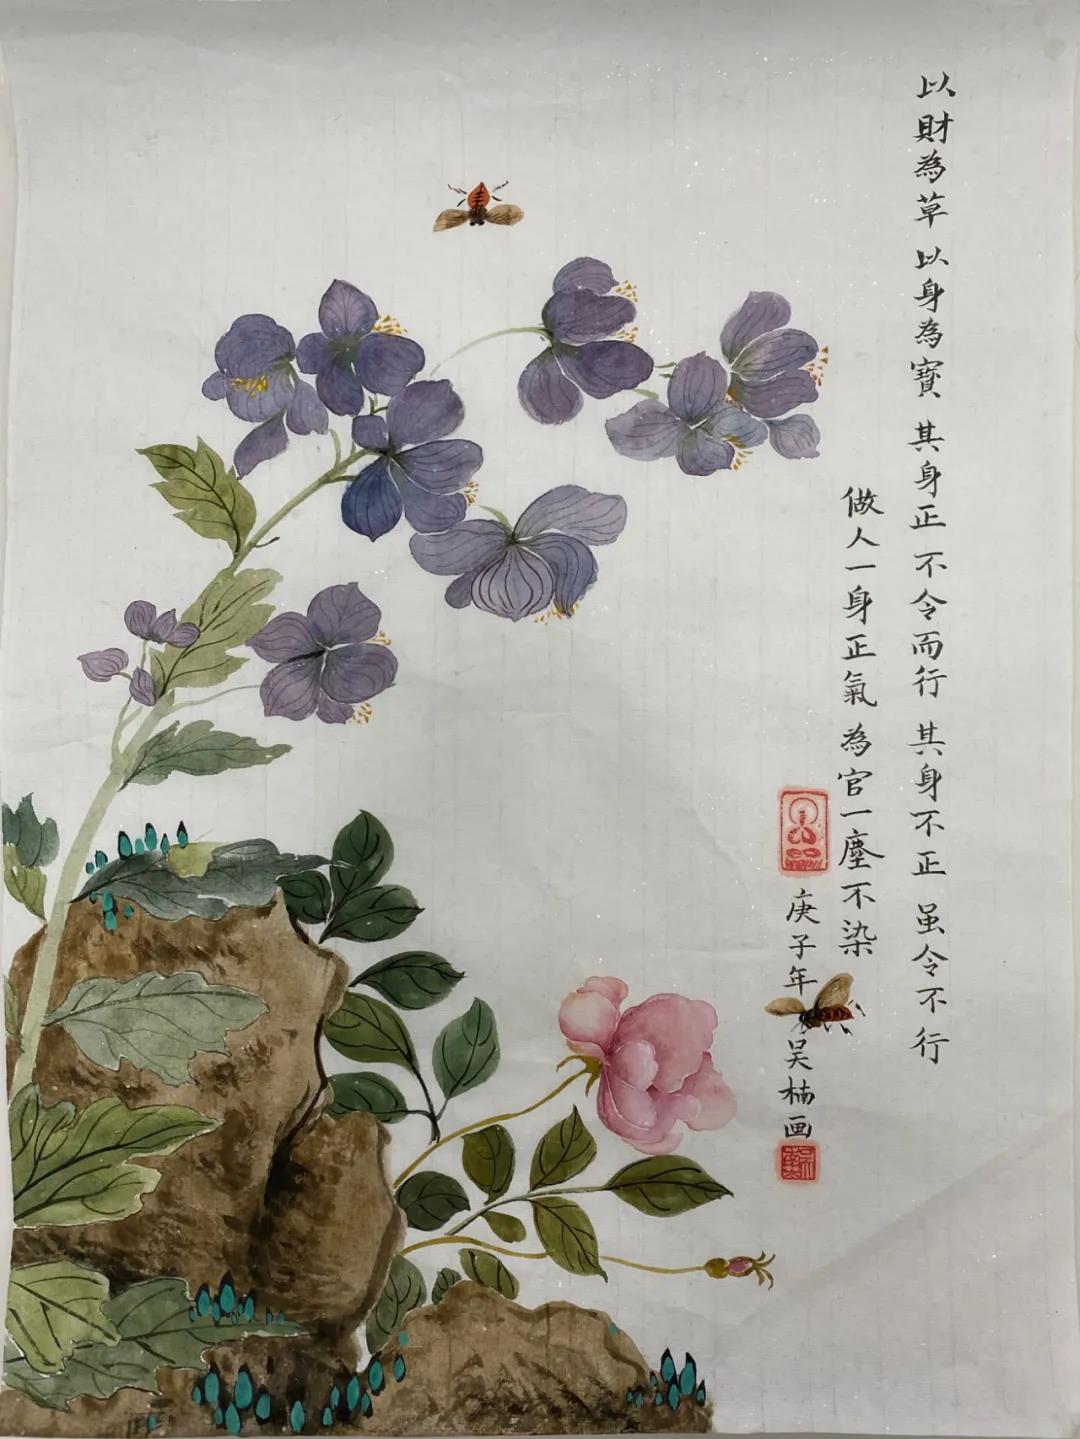 以財為草 以身為寶 其身正 不令而行 其身不正 虽令不行
做人一身正氣 為官一塵不染
庚子年 吴楠画